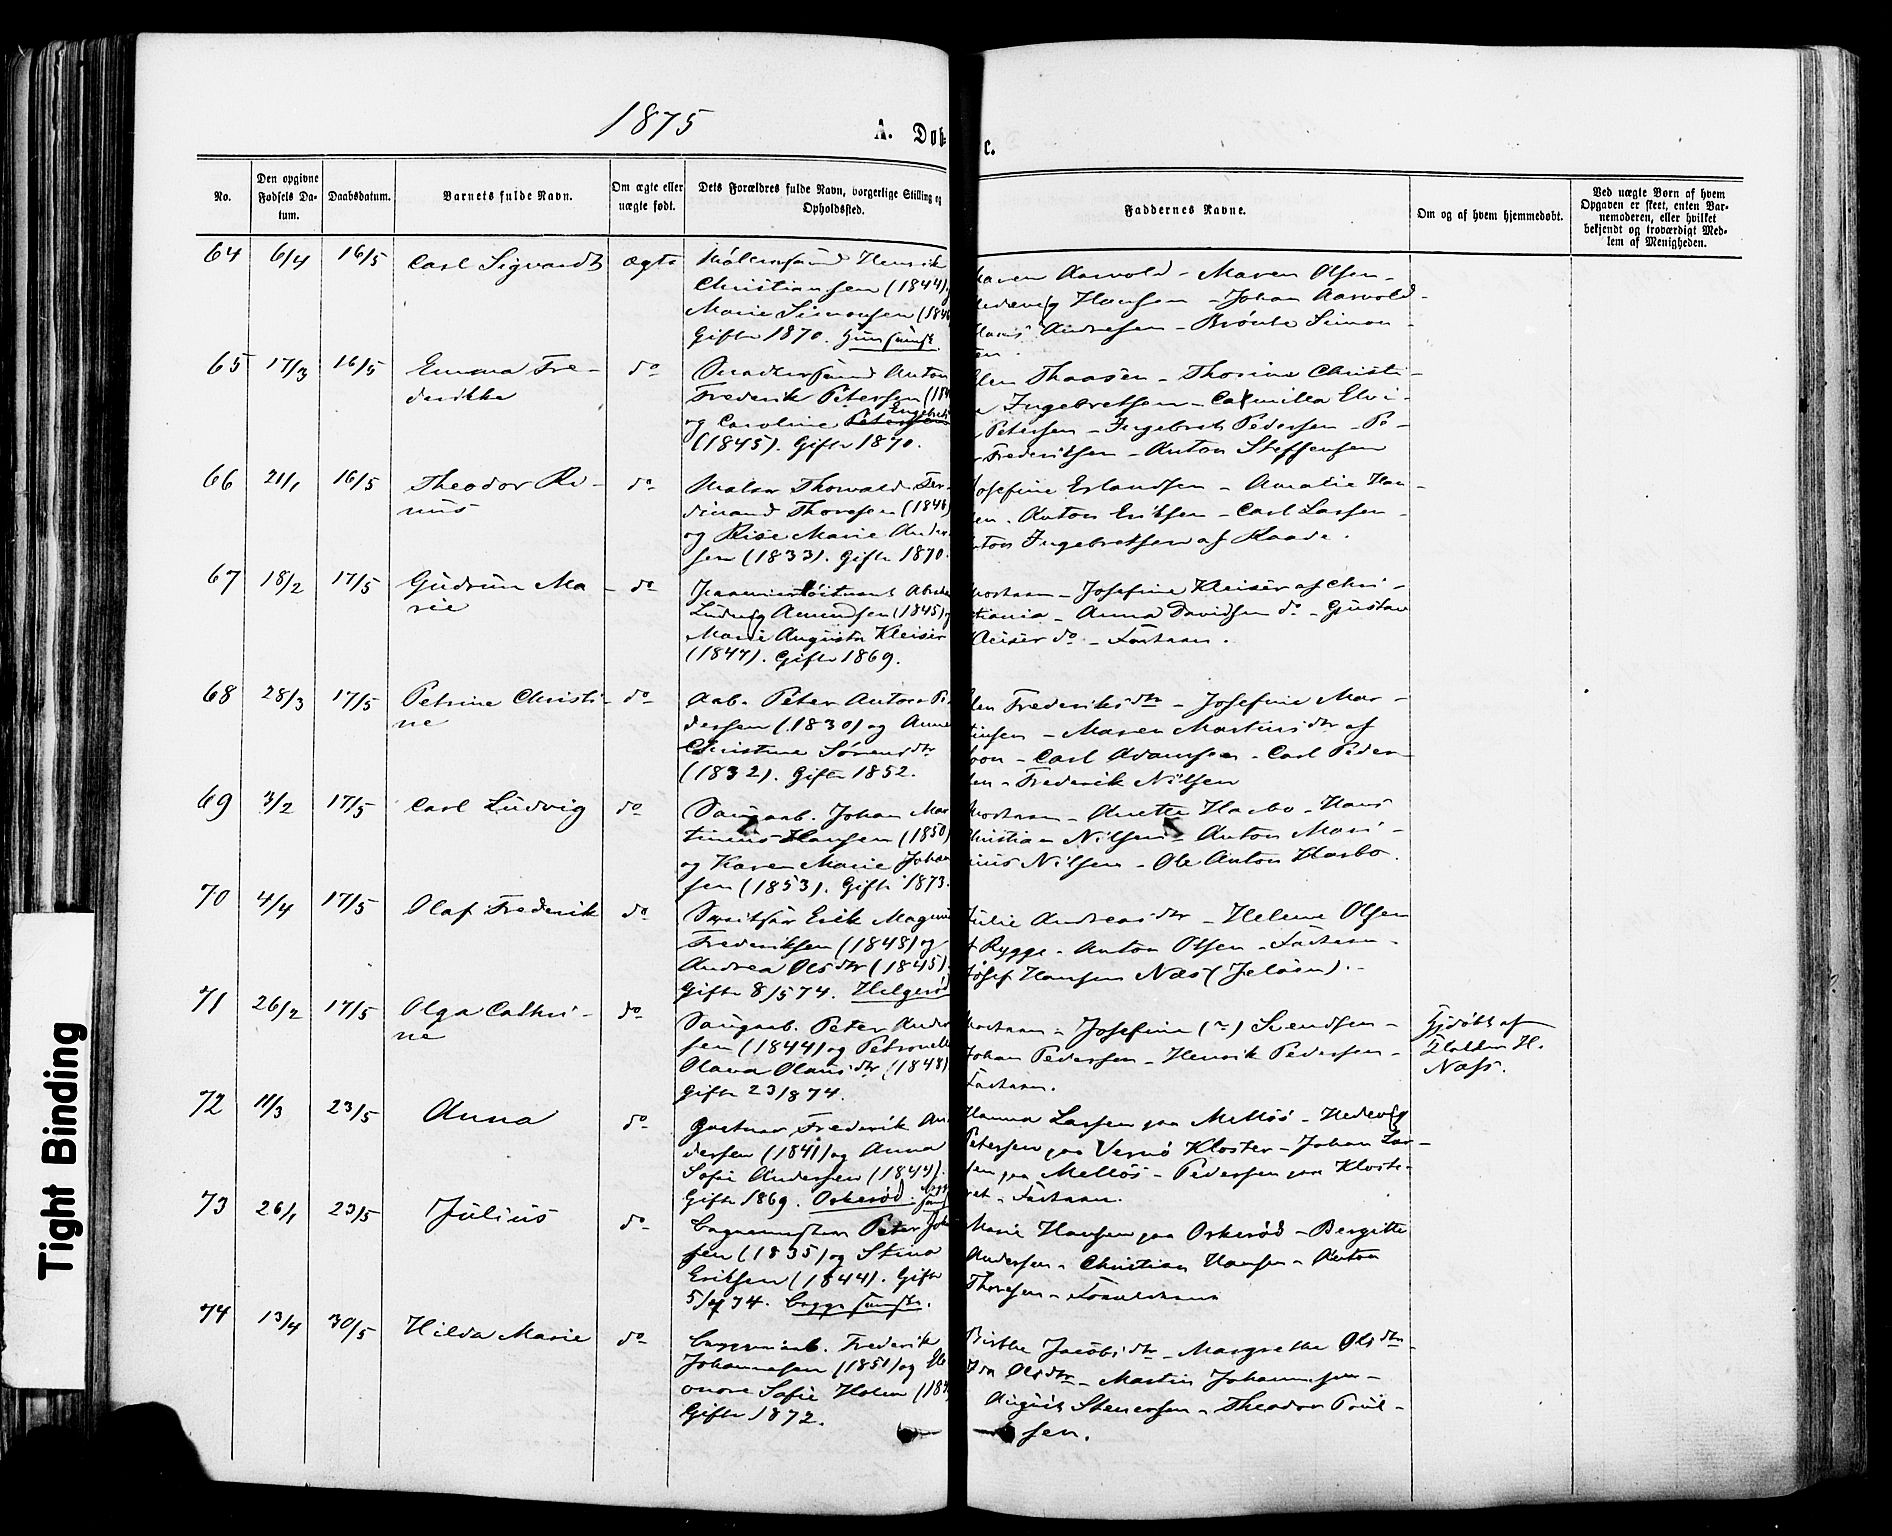 1875
A. Døb-
e.
No.
Den opgivne Fødsels Da-tum.
Daabsdatum.
Barnets fulde Navn.
Om ægte eller uægte født.
Dets Forældres fulde Navn, borgerlige Stilling og Opholdssted.
Faddernes Navne.
Om og af hvem hjemmedøbt.
Ved uægte Born af hvem Opgaven er skeet, enten Bar-nemoderen, eller hvilket bekjendt og troværdigt Med-lem af Menigheden.
64 6/4 16/5 Carl Sigvardt ægte
Henrik
Christiansen (1844)
Marie Simonsen
Gifte 1870.
Aarvold - Maren Olsen -
Hansen - Johan Aarvold -
Andresen - Simon -
sen.
65 17/3 16/5 Emma Fre-
derikke
do
Anton
Frederik Petersen
og Caroline Petersen
(1845). Gifte 1870.
Thoasen - Thorine Christi-
Ingebretsen - Camilla Elvi-
Petersen - Ingebret Pedersen - Pe-
Frederiksen - Anton Steffensen
66 21/1 16/5 Theodor Ri-
nus
do
Thorvald Fer-
dinand Thoresen (1848)
og Marie Ander
sen (1833). Gifte 1870.
Josefine Erlandsen - Amalie Han-
sen - Anton Eriksen - Carl Larsen -
Ingebretsen af Raade.
67 18/2 17/5 Gudrun Ma-
rie
do
Ludvig Amundsen (1845)
Marie Augusta Kleiser
(1847). Gifte 1869.
Mostaar - Josefine Kleiser af Chri-
stiania - Anna Davidsen do - Gustav
Kleiser do - Fastaar.
68 28/3 17/5 Petrine Christi-
ne
do
Aab. Peter Anton Pe
dersen (1830) og Anne
Christine Sørensdtr
(1832). Gifte 1852.
Frederiksdtr - Josefine Mar-
tinsen - Maren Martinsdtr af
- Carl Adamsen - Carl Peder-
sen - Frederik Nilsen
69 3/2 17/5 Carl Ludvig
do
Saugaab. Johan Mar
tinius Hansen (1850)
og Karen Marie Johan
sen (1853). Gifte 1873.
Mostaar - Anette Harbo - Hans
Christian Nilsen - Anton Mari-
nius Nilsen - Ole Anton Harbo.
70 4/4 17/5 Olaf Frederik
do
Erik Magnus
Frederiksen (1848) og
Andrea Olsdtr (1845).
Gifte 8/5 74. Helgerød
Julie Andreasdtr - Helene Olsen
af Rygge - Anton Olsen - Fastaar -
Josef Hansen Næs (Jeløen). -
71 26/2 17/5 Olga Cathri-
ne
do
Saugaab. Peter Ander
sen (1844) og Petronelle
Olava Olausdtr (1848)
Gifte 23/8 74.
Mostaar - Josefine Svendsen -
Johan Pedersen - Henrik Pedersen -
Fastaar.
Hjdøbt af
Halder H.
Næss.
72 11/3 23/5 Anna
do
Frederik An
dersen (1841) og Anna
Sofie Andersen (1844).
Gifte 1869. Orkerød
Hanna Larsen paa Melløs - Hedevig
Petersen paa Vernø Kloster - Johan Lar-
sen paa Melløs - Pedersen paa Kloste-
ret - Fastaar.
73 26/1 23/5 Julius
do
Peter Joh
sen (1835) og Stina
Eriksen (1844). Gifte
Marie Hansen paa Orkerød - Bergitte
Andersen - Christian Hansen - Anton
Thoresen - Forældrene
74 13/4 30/5 Hilda Marie
do
Frederik
Johannesen (1851) og Ele
onore Sofie Holm
Gifte 1872.
Birthe Jacobsdtr - Margrethe Olsdtr -
Olsdtr - Martin Johannesen -
August Stenersen - Theodor Poul-
sen.
Tight Binding